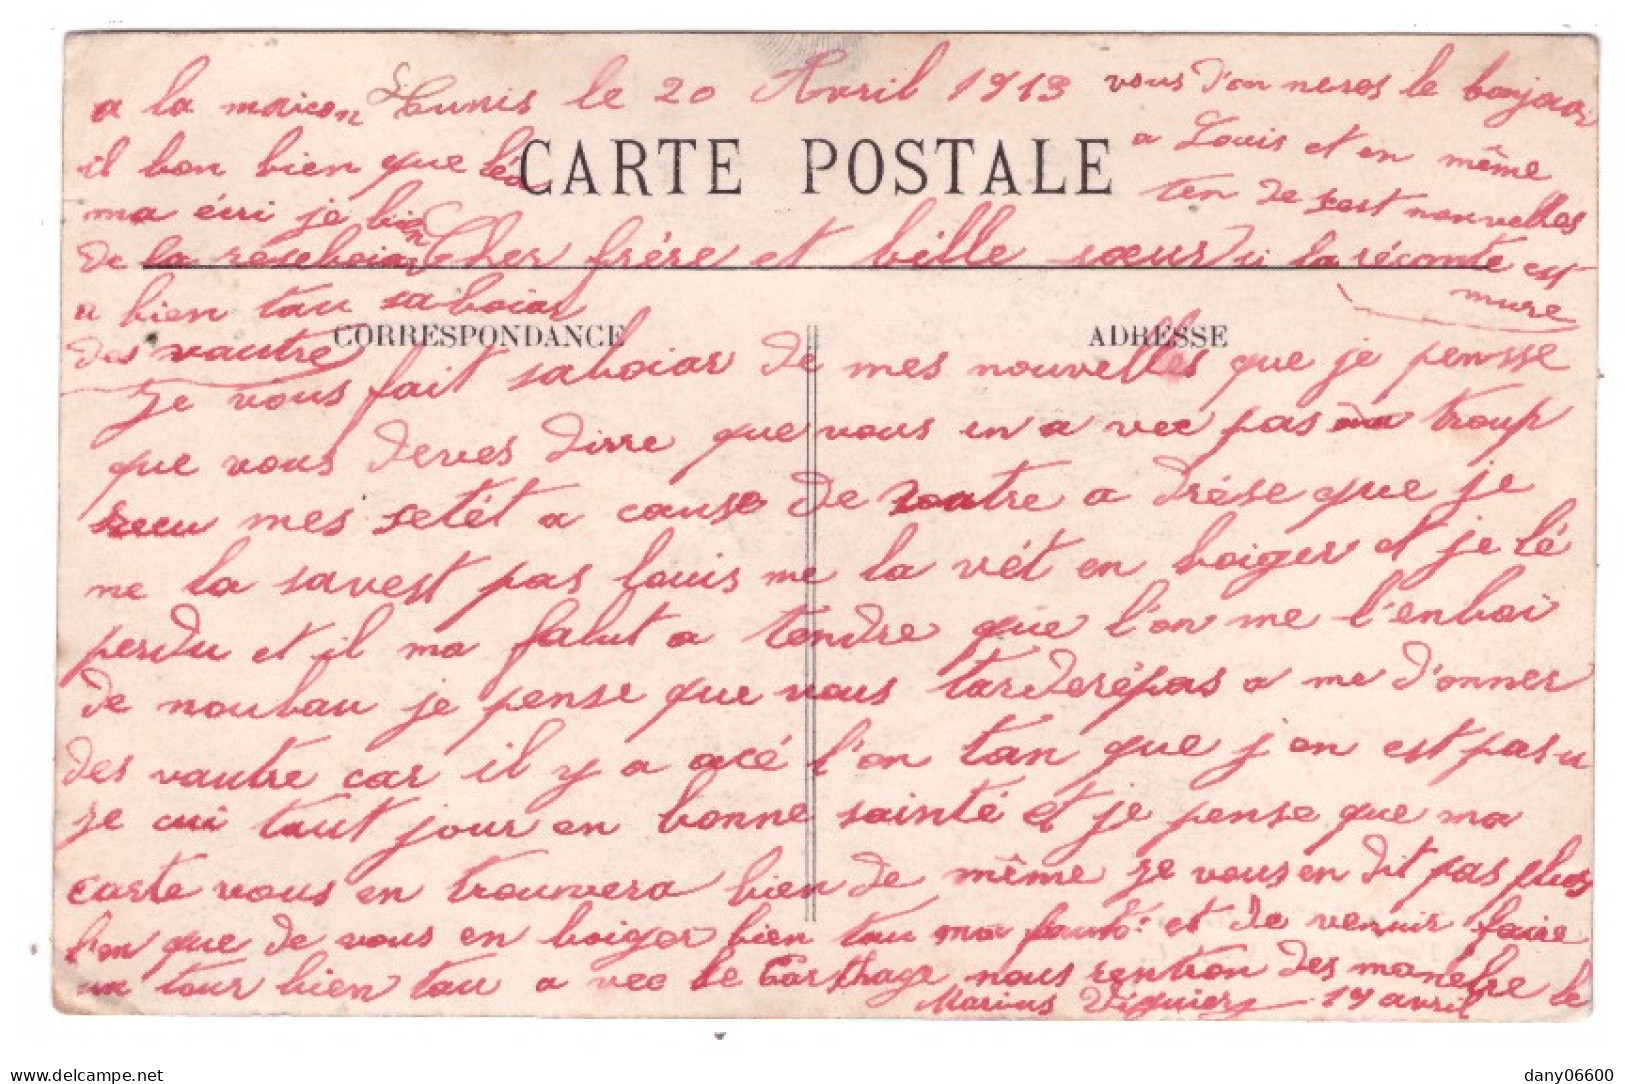 Tunis le 20 Avril 1913
CARTE POSTALE
Cher frére et bélle sœur
CORRESPONDANCE
ADRESSE
Je vous fait saboiar de mes nouvelles que je pensse
que vous deves dirre que vous en a vec pas troup
recu mes setét a cause de voutre a drése que je
ne la savest pas louis me la vét en boiger et je lé
perdu et il ma falut a tendre que l'on me l'enboi
de noubau je pense que vous tarderépas a me d'onner
des vautre car il y a acé l'on tan que j'on est pas u
je cui taut jour en bonne sainté et je pense que ma
carte vous en trouvera bien de même je vous en dit pas plus
l'on que de vous en boiger bien tau ma fauto. et de venir faire
un tour bien tau a vec le Carthage nous rentron des manebre le
19 avril
Marius Viguier
a la maicon
il bon bien que léo
ma écri je bien
de la reseboiar
a bien tau saboiar
des vautre
vous d'on neres le bonjour
a Louis et en même
ten de sest nouvelles
di la réconte est
mure
dany06600